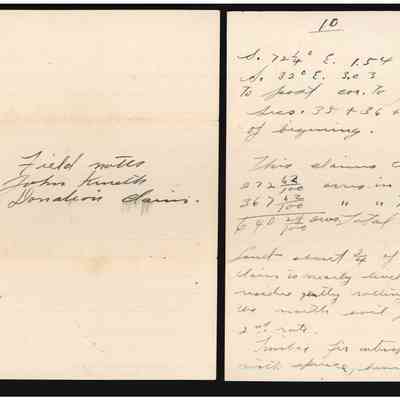 Field notes
John Kineth
Donation claim.
10
S. 72¼° E. 1.54
S. 32° E. 3.03
to post cor. to
secs. 35 + 36 +
of beginning.
This claims
272 62/100 acres in
367 62/100 " "
640 24/100 acres Total
Land about ¾ of
claim is nearly level
rolling
north soil
2nd rate.
Timber fir
with spruce,